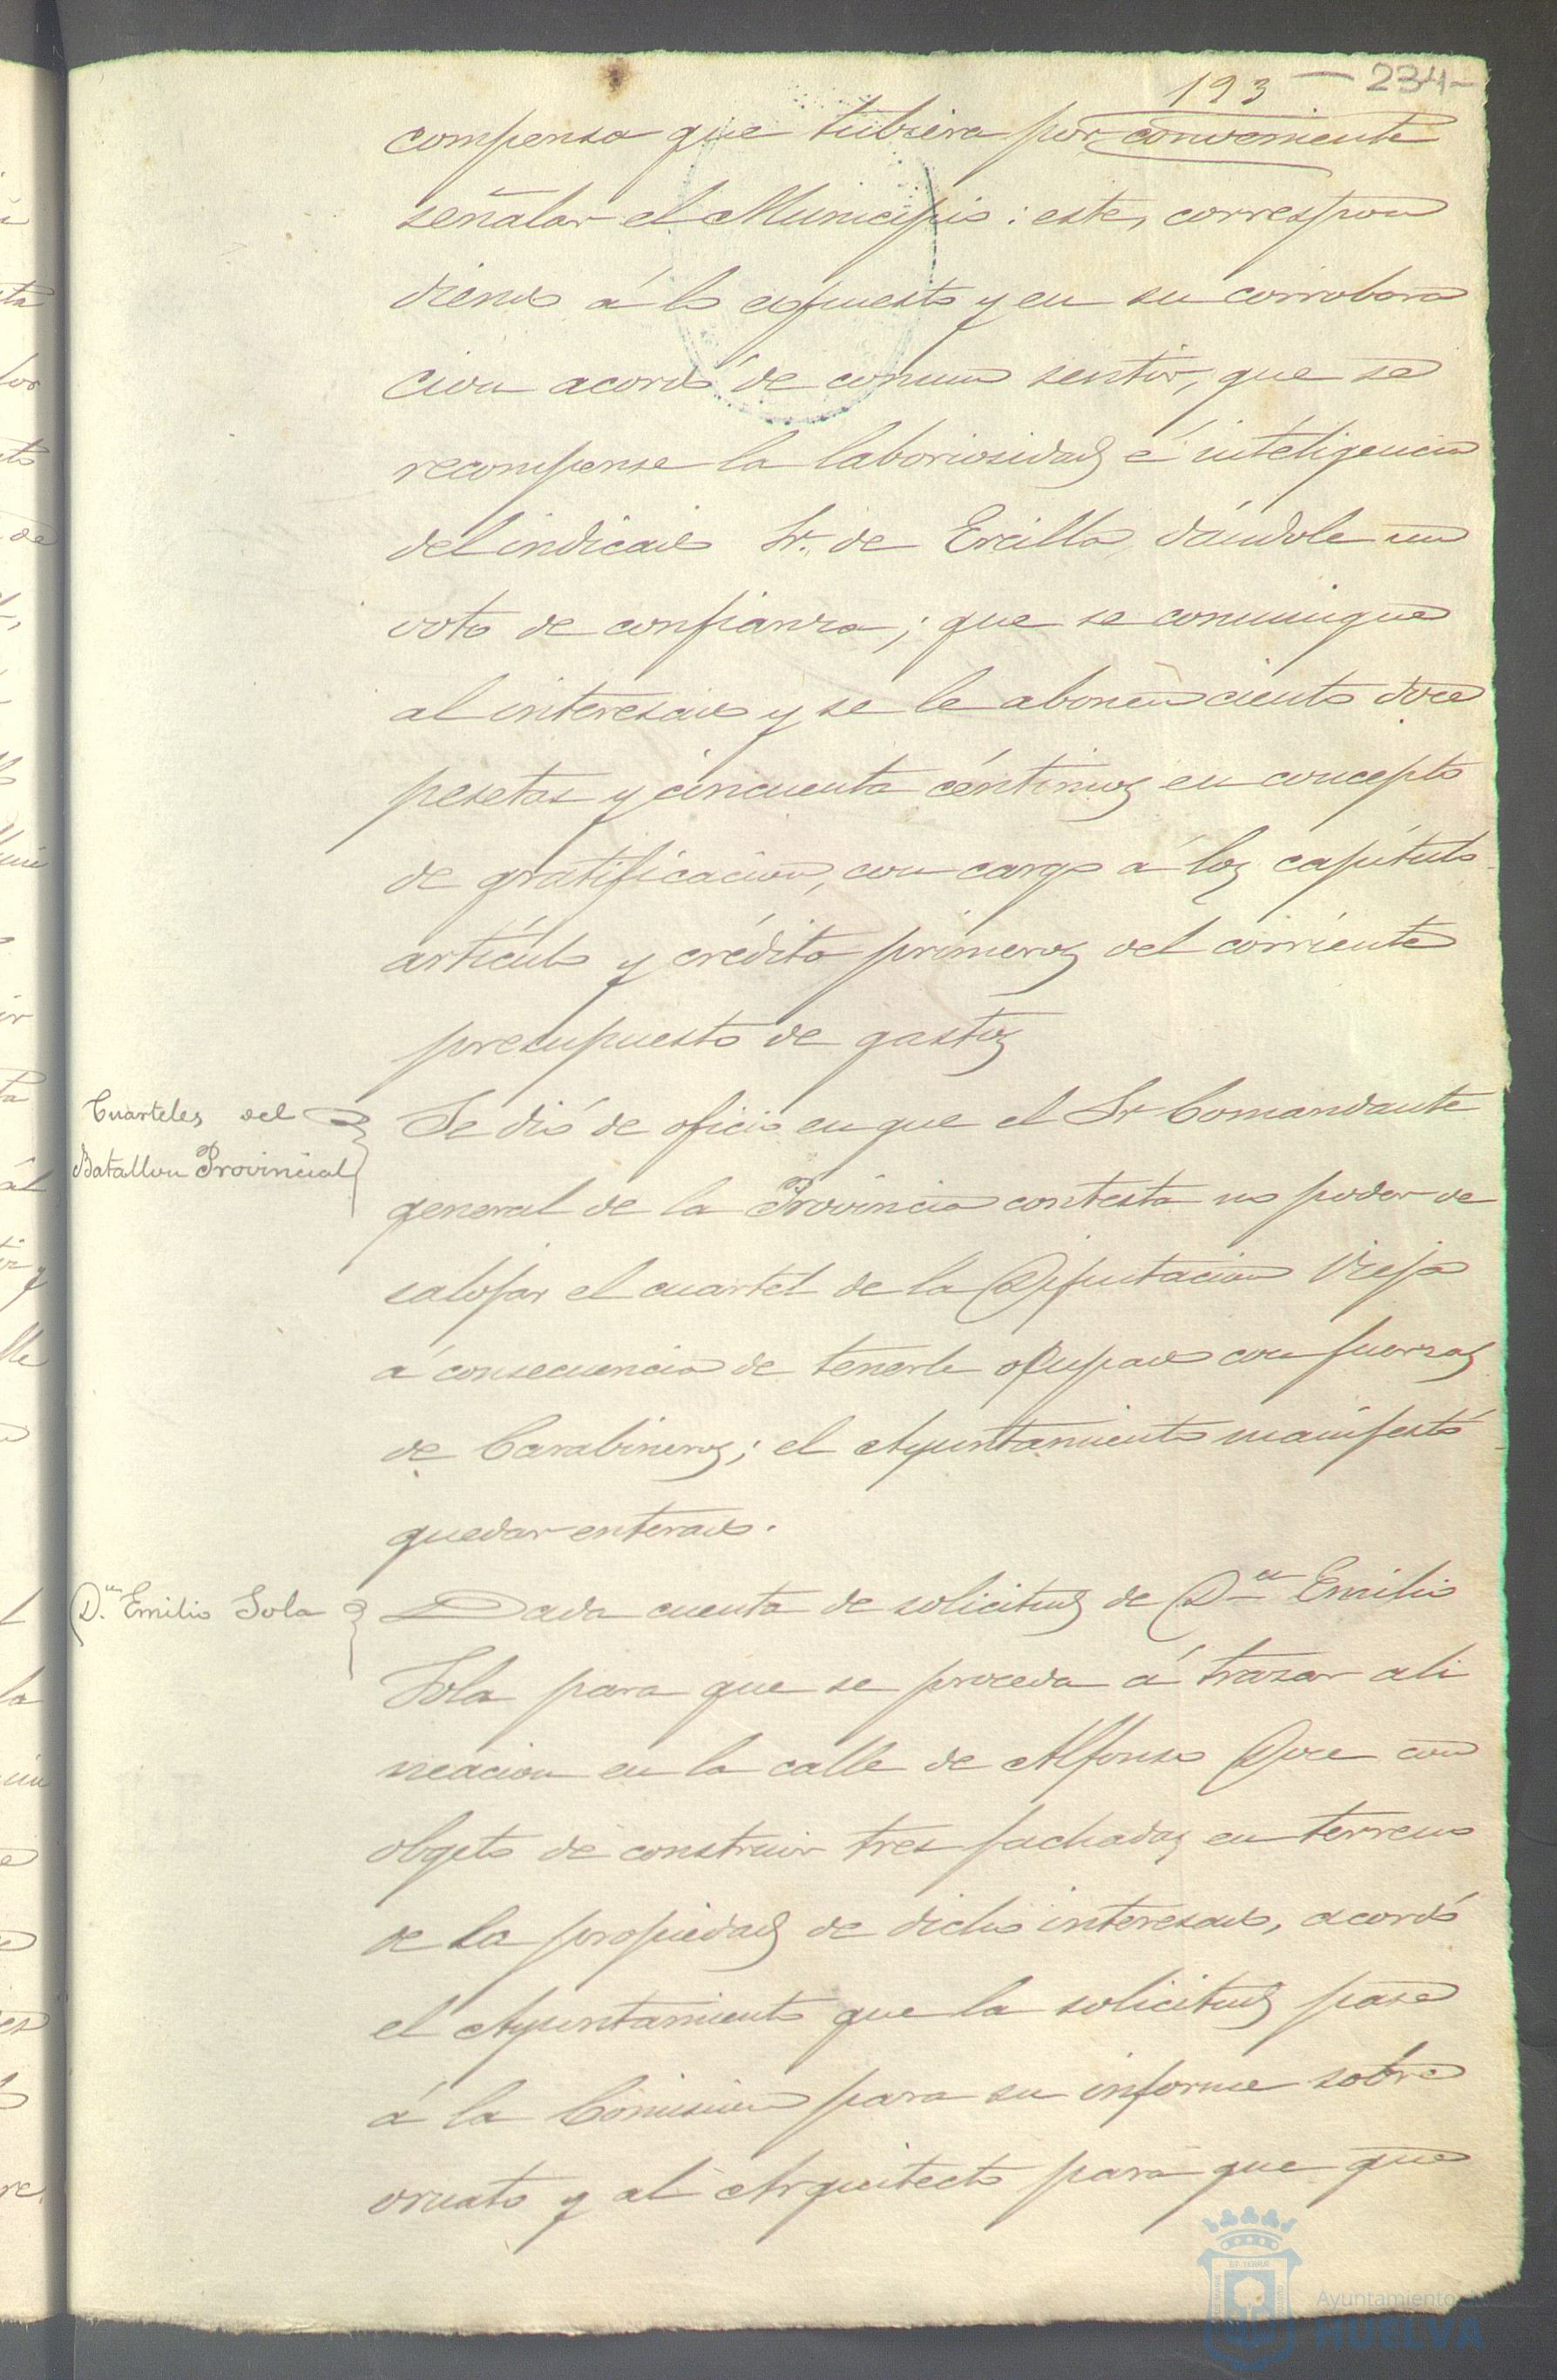 193 - 234-
compensa que tubiera por conveniente
señalar el Municipio: este, correspon
diendo á lo espuesto y en su corrobora
cion acordó de comun sentir, que se
recompense la laboriosidad é inteligencia
del indicado Sr. de Ercilla dándole un
voto de confianza; que se comunique
al interesado y se le abonen ciento doce
pesetas y cincuenta céntimos en concepto
de gratificacion, con cargo á los capítulo
artículo y crédito primeros del corriente
presupuesto de gastos
Cuarteles del
Batallon Provincial
Se dió de oficio en que el Sr Comandante
general de la Provincia contesta no poder de
salojar el cuartel de la Diputacion Vieja
á consecuencia de tenerle ocupado con fuerzas
de Carabineros; el Ayuntamiento manifestó
quedar enterado.
D.n Emilio Sola
Dada cuenta de solicitud de Dn Emilio
Sola para que se proceda á trazar ali
neacion en la calle de Alfonso Doce con
obgeto de construir tres fachadas en terreno
de la propiedad de dicho interesado, acordó
el Ayuntamiento que la solicitud pase
á la Comision para su informe sobre
ornato y al Arquitecto para que que
Ayuntamiento
HUELVA